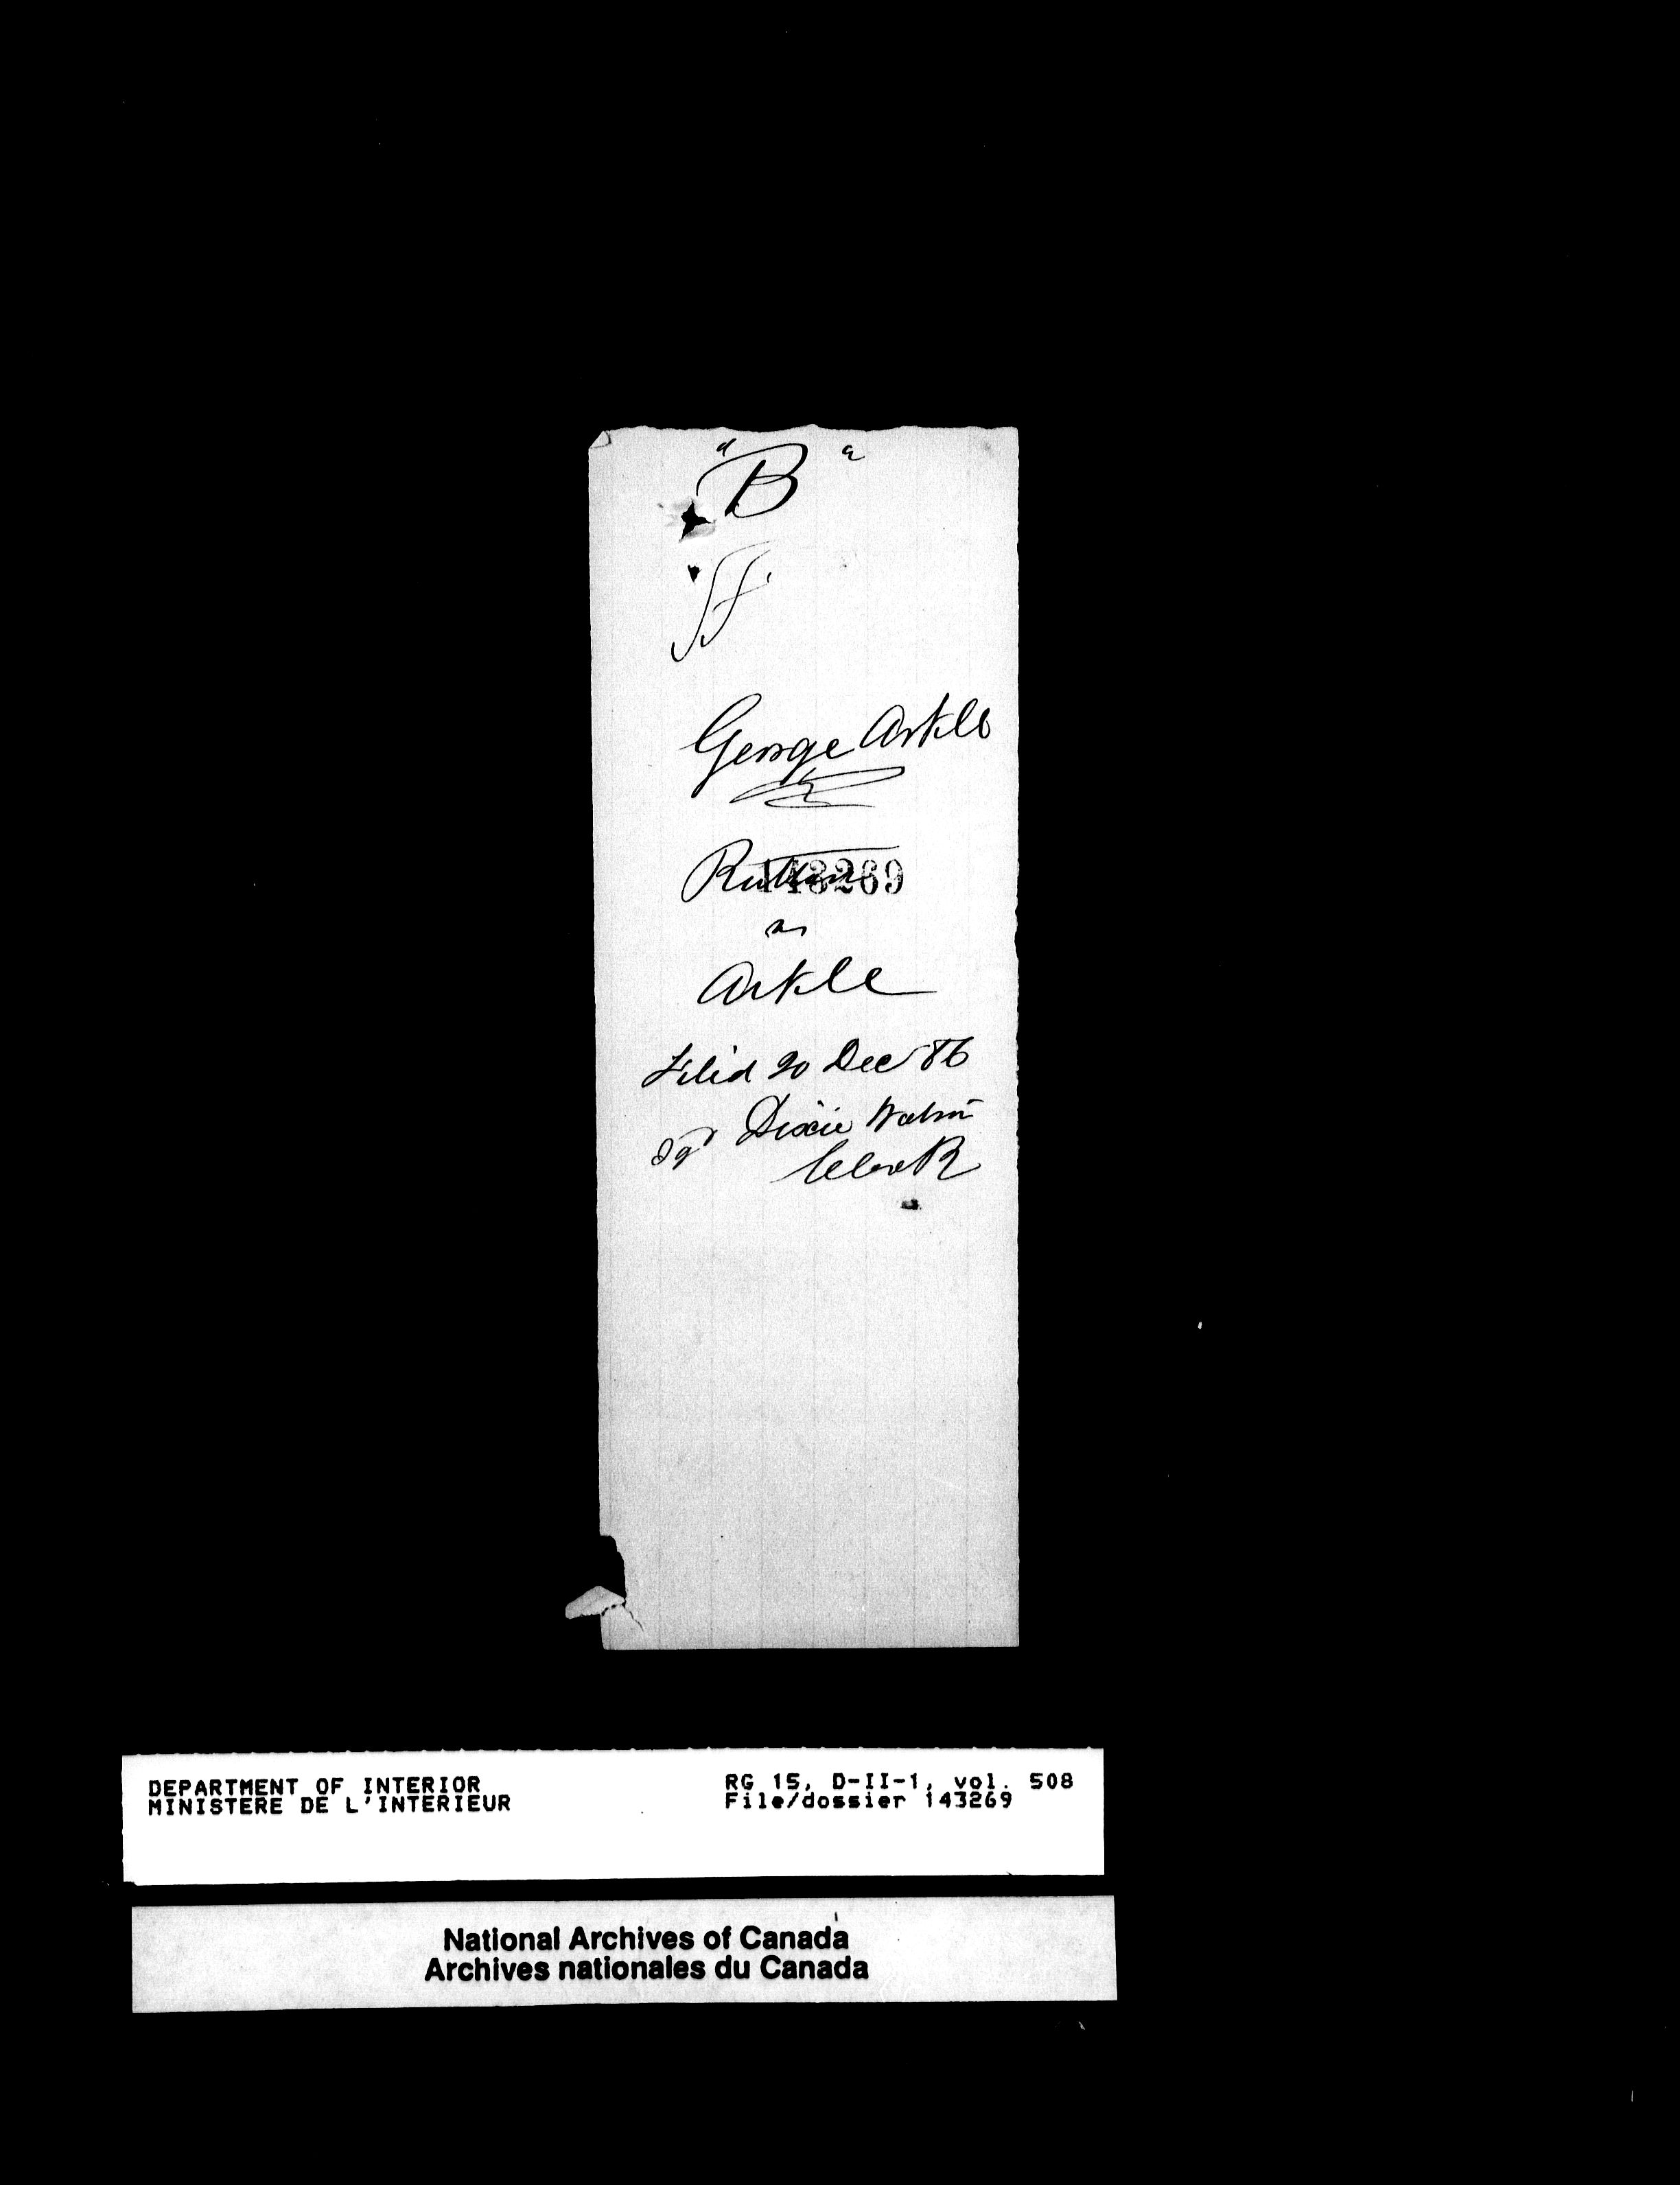 "B"
George Arkle
Ruttan
143269
vs
Arkle
Filed 20 Dec 86
sgd Dixie Watson
Clerk
DEPARTMENT OF INTERIOR
MINISTERE DE L'INTERIEUR
RG 15, D-II-1, vol. 508
File/dossier 143269
National Archives of Canada
Archives nationales du Canada